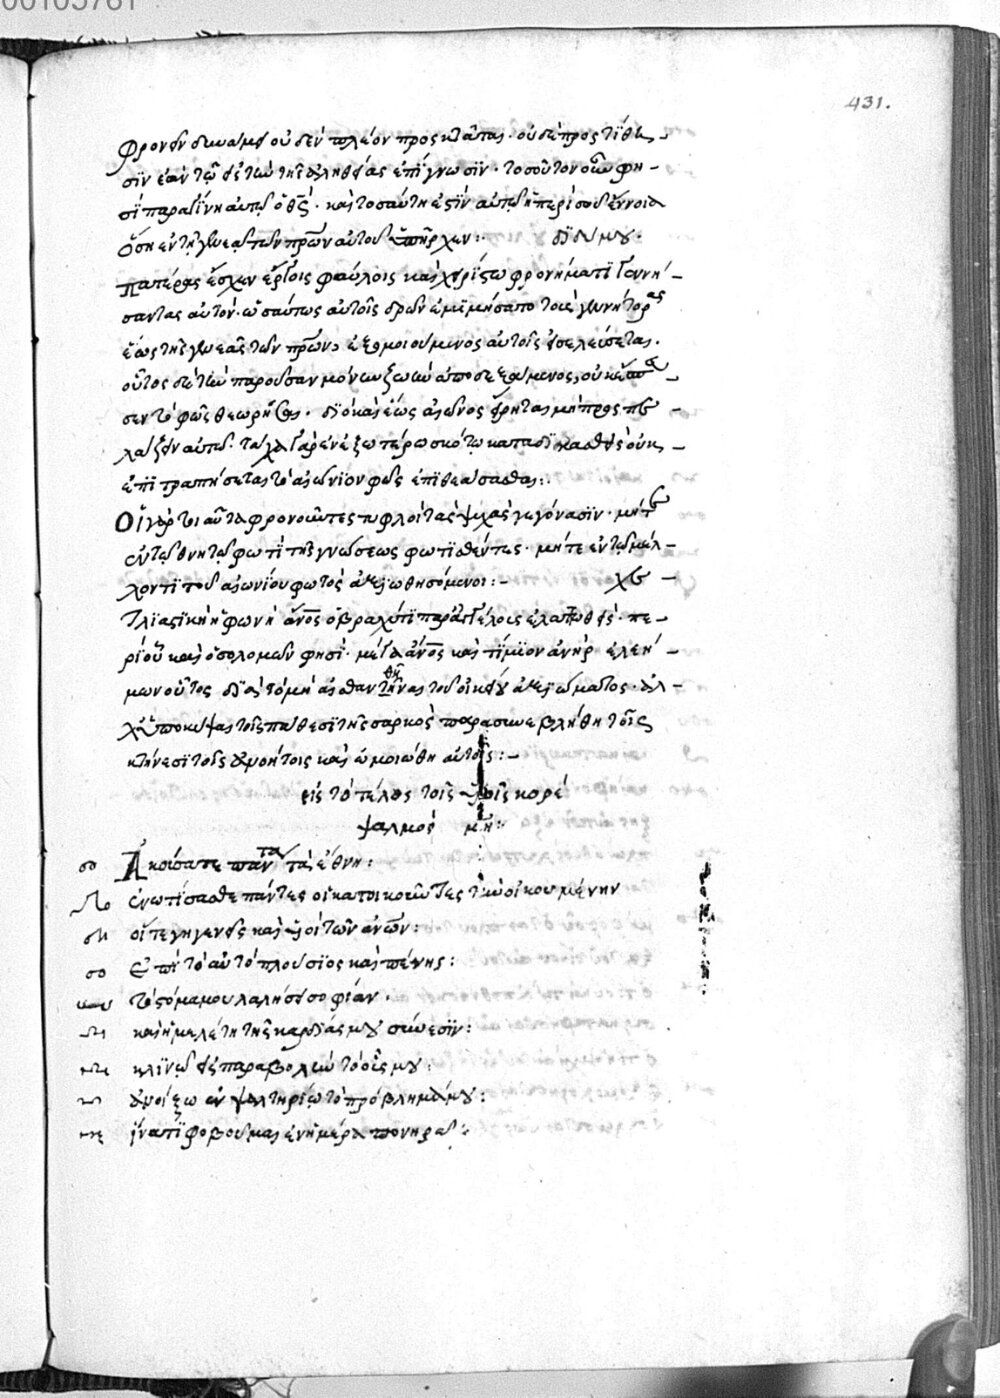 00105761
431.
φρονεῖν δυναμεν οὐδὲν πλέον προς κτᾶται. οὐδὲ προς τίθη
σῖν ἐὰν τῷ εἰς τὴν τῆς ἀληθείας ἐπίγνωσϊν. τοσοῦτον οὖν φη
σὶ παραδίνη αὐτῷ ὁ θς. καὶ τοσαύτη ἐστὶν αὐτῷ ἡ περὶ σοῦ ἔννοια
ὅση ἐν τῇ γενεᾷ τῶν πρῶν αὐτοῦ ὑπῆρχεν:· διδύμου.
πατέρας ἔσχεν ἔργοις φαύλοις καὶ χείρϊστω φρονήματι γεννή
σαντας αὐτόν. ὡσαύτως αὐτοῖς δρῶν ἐμιμήσατο τοὺς γεννήτορας
ἕως τῆς γενεᾶς τῶν πρῶν ἐξομοιούμενος αὐτοῖς εἰσελεύσεται.
οὗτος δὲ τὴν παροῦσαν μόνην ζωὴν ἀποδεξάμενος, οὐκ
σεν τὸ φῶς θεωρῆσαι. διὸ καὶ ἕως αἰῶνος εἴρηται μὴ προς
ταχα γὰρ ἐν ἐξωτέρω σκότω καταδικασθεὶς οὐκ
ἐπιτραπήσεται τὸ αἰώνϊον φῶς ἐπϊθεάσασθαι:·
Οἱ γάρ τοι αὗτα φρονοῦντες τυφλοὶ τὰς ψυχὰς γεγόνασϊν. μήτε
ἐν τῷ θνητῷ φωτὶ τῆς γνώσεως φωτϊσθέντες. μήτε ἐν τῷ μέλ
λοντϊ τοῦ αἰωνίου φωτὸς ἀξιωθησόμενοι:·
ἡ φωνὴ ἄνος ὁ βραχύτϊ παρ᾽ ἀγγέλοις ἐλαττωθείς. πε
ρὶ οὗ καὶ ὁ σολομῶν φησὶ. μέγα ἄνος καὶ τίμϊον ἀνὴρ ἐλεή
μων οὗτος διὰ τὸ μὴ αἰσθανθῆναι τοῦ οἰκείου ἀξιώματος. ἀλ
λ᾽ ὑποκύψας τοῖς πάθεσϊ τῆς σαρκὸς παρασυνεβλήθη τοῖς
κτήνεσϊ τοῖς ἀνοήτοις καὶ ὡμοιώθη αὐτοῖς:·
εἰς τὸ τέλος τοῖς υἱοῖς κορέ
ψαλμὸς μη:·
Ἀκούσατε πάντα τὰ ἔθνη:
ἐνωτίσασθε πάντες οἱ κατοικοῦντες τὴν οἰκουμένην
οἵ τε γηγενεῖς καὶ υἱοὶ τῶν ἀνων:
Ἐπὶ τὸ αὐτὸ πλούσϊος καὶ πένης:
τὸ στόμα μου λαλήσει σοφίαν.
καὶ ἡ μελέτη τῆς καρδίας μου σύνεσϊν:
κλϊνῶ εἰς παραβολὴν τὸ οὖς μου:
ἀνοίξω ἐν ψαλτηρίῳ τὸ πρόβλημά μου:
ἱνατὶ φοβοῦμαι ἐν ἡμέρα πονηρᾶ: